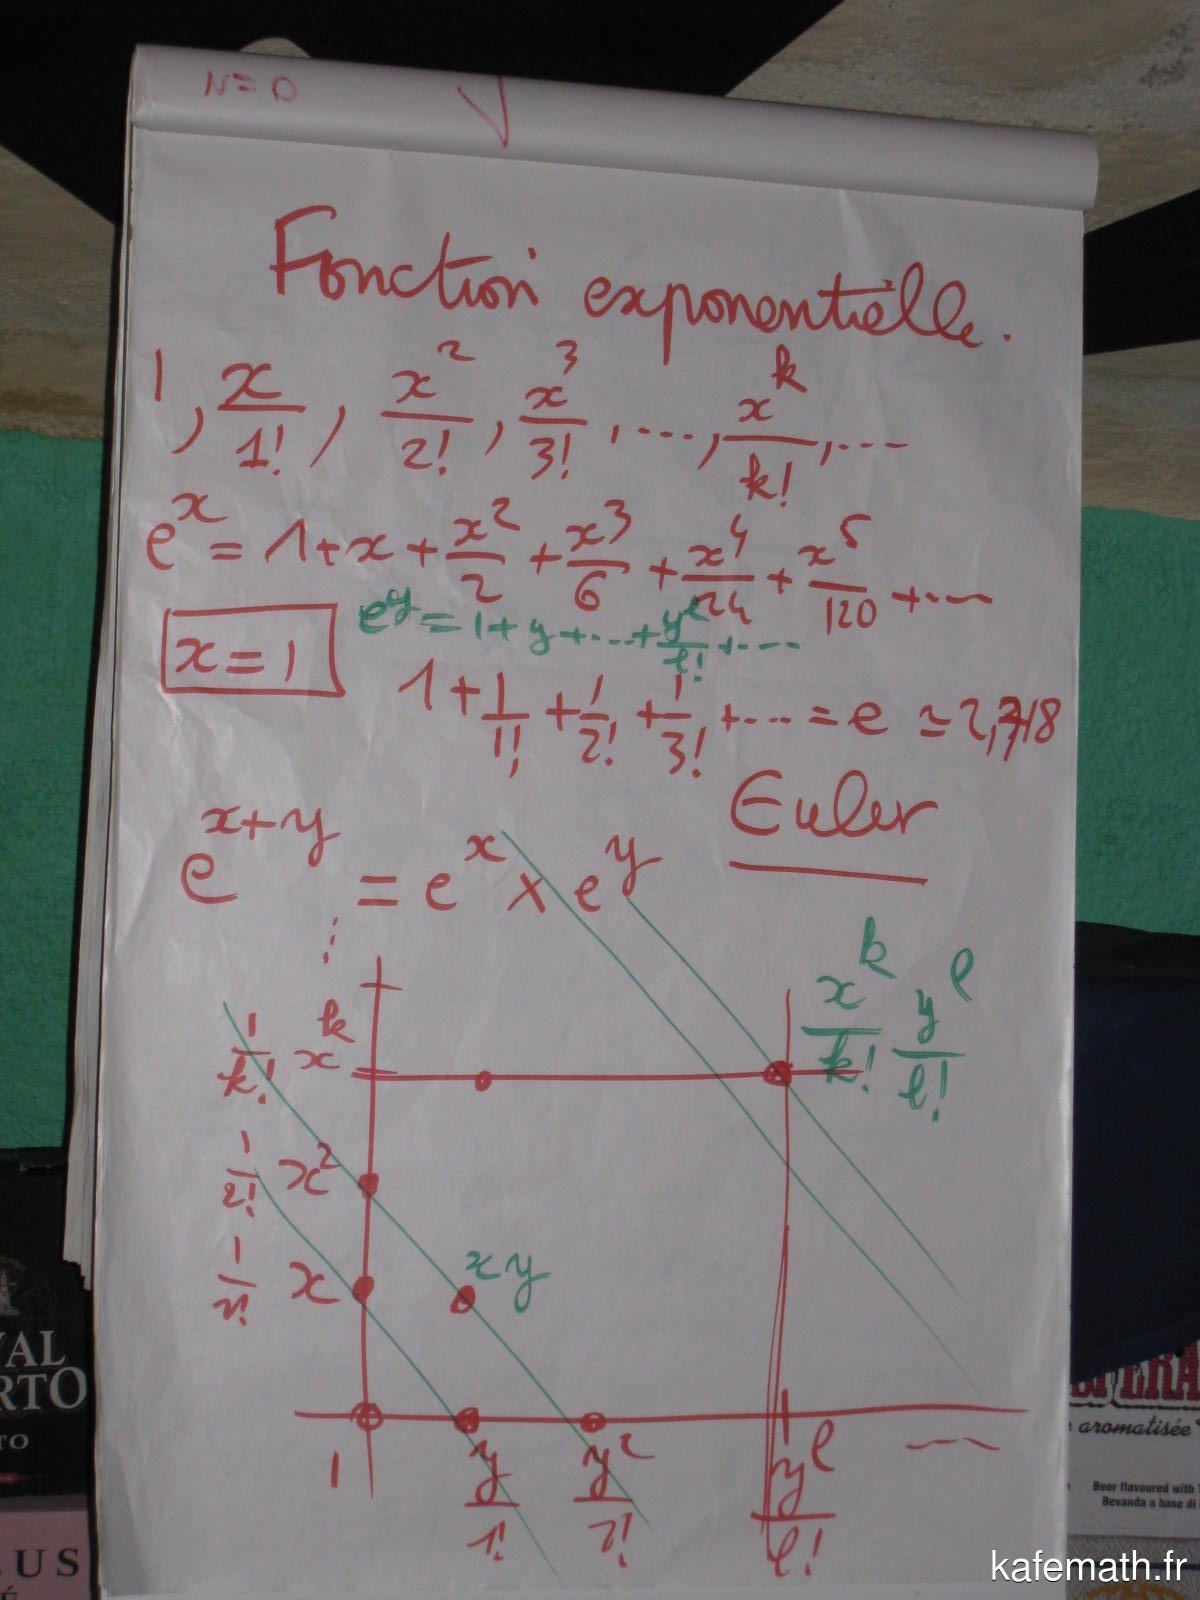 N=0
Fonction exponentielle.
1, x/1!, x²/2!, x³/3!, ..., x^k/k!, ...
e^x = 1+x+x²/2+x³/6+x⁴/24+x⁵/120+...
e^y = 1+y+...+y^l/l!+...
x=1
1+1/1!+1/2!+1/3!+...=e≃2,718
Euler
e^(x+y) = e^x × e^y
x^k/k! y^l/l!
1/k! x^k
1/2! x²
xy
1/1! x
1 y/1! y²/2! y^l/l!
VAL
RTO
TO
aromatisée
Beer flavoured with
Bevanda a base di
EUS
kafemath.fr